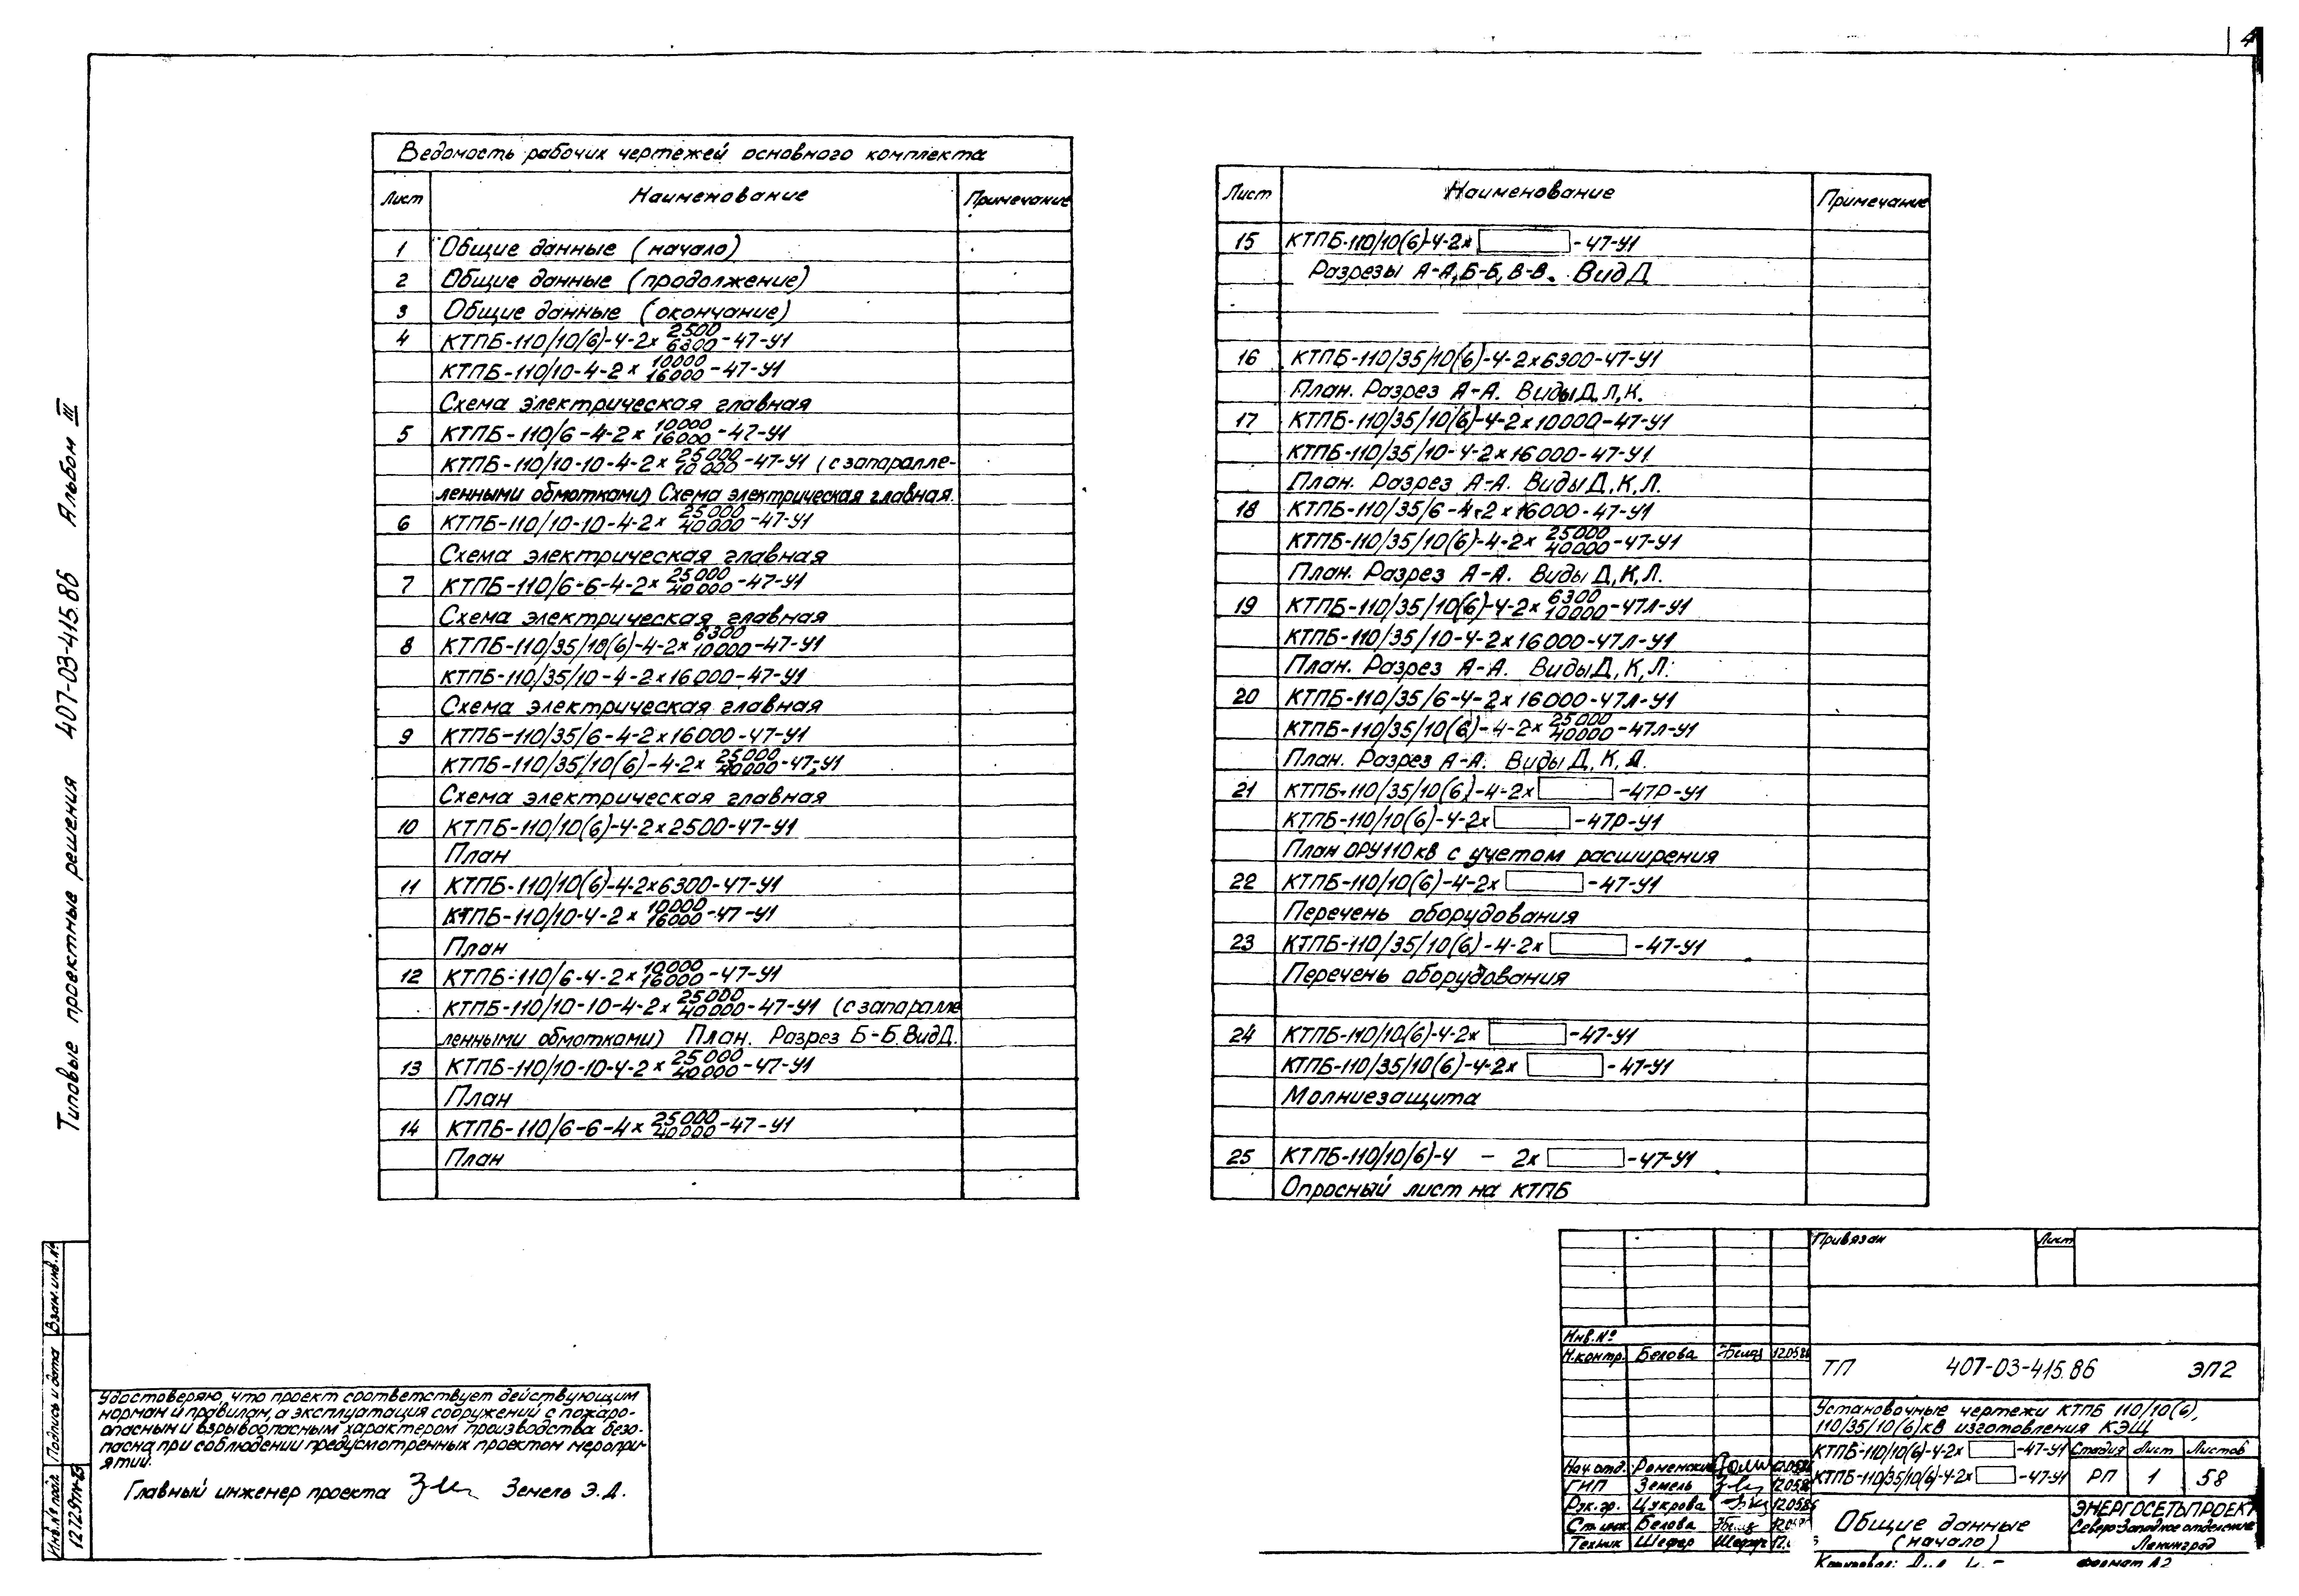 4
Ведомость рабочих чертежей основного комплекта
Лист Наименование Примечание
1 Общие данные (начало)
2 Общие данные (продолжение)
3 Общие данные (окончание)
4 КТПБ-110/10(6)-4-2x 2500/6300 -47-У1
КТПБ-110/10-4-2x 10000/16000 -47-У1
Схема электрическая главная
5 КТПБ-110/6-4-2x 10000/16000 -47-У1
КТПБ-110/10-10-4-2x 25000/10000 -47-У1 (с запаралле-
ленными обмотками) Схема электрическая главная.
6 КТПБ-110/10-10-4-2x 25000/40000 -47-У1
Схема электрическая главная
7 КТПБ-110/6-6-4-2x 25000/40000 -47-У1
Схема электрическая главная
8 КТПБ-110/35/10(6)-4-2x 6300/10000 -47-У1
КТПБ-110/35/10-4-2x16000-47-У1
Схема электрическая главная
9 КТПБ-110/35/6-4-2x16000-47-У1
КТПБ-110/35/10(6)-4-2x 25000/40000 -47-У1
Схема электрическая главная
10 КТПБ-110/10(6)-4-2x2500-47-У1
План
11 КТПБ-110/10(6)-4-2x6300-47-У1
КТПБ-110/10-4-2x 10000/16000 -47-У1
План
12 КТПБ-110/6-4-2x 10000/16000 -47-У1
КТПБ-110/10-10-4-2x 25000/40000 -47-У1 (с запаралле
ленными обмотками) План. Разрез Б-Б. Вид Д.
13 КТПБ-110/10-10-4-2x 25000/40000 -47-У1
План
14 КТПБ-110/6-6-4x 25000/40000 -47-У1
План
Лист Наименование Примечание
15 КТПБ-110/10(6)-4-2x -47-У1
Разрезы А-А, Б-Б, В-В. Вид Д
16 КТПБ-110/35/10(6)-4-2x6300-47-У1
План. Разрез А-А. Виды Д, Л, К.
17 КТПБ-110/35/10(6)-4-2x10000-47-У1
КТПБ-110/35/10-4-2x16000-47-У1
План. Разрез А-А. Виды Д, К, Л.
18 КТПБ-110/35/6-4-2x16000-47-У1
КТПБ-110/35/10(6)-4-2x 25000/40000 -47-У1
План. Разрез А-А. Виды Д, К, Л.
19 КТПБ-110/35/10(6)-4-2x 6300/10000 -47Л-У1
КТПБ-110/35/10-4-2x16000-47Л-У1
План. Разрез А-А. Виды Д, К, Л.
20 КТПБ-110/35/6-4-2x16000-47Л-У1
КТПБ-110/35/10(6)-4-2x 25000/40000 -47Л-У1
План. Разрез А-А. Виды Д, К, Л.
21 КТПБ-110/35/10(6)-4-2x -47Р-У1
КТПБ-110/10(6)-4-2x -47Р-У1
План ОРУ110кВ с учетом расширения
22 КТПБ-110/10(6)-4-2x -47-У1
Перечень оборудования
23 КТПБ-110/35/10(6)-4-2x -47-У1
Перечень оборудования
24 КТПБ-110/10(6)-4-2x -47-У1
КТПБ-110/35/10(6)-4-2x -47-У1
Молниезащита
25 КТПБ-110/10/6)-4 - 2x -47-У1
Опросный лист на КТПБ
Типовые проектные решения 407-03-415.86 Альбом III
Инв.№ подл. Подпись и дата Взам.инв.№
12729тм-
Удостоверяю, что проект соответствует действующим
нормам и правилам, а эксплуатация сооружений с пожаро-
опасным и взрывоопасным характером производства безо-
пасна при соблюдении предусмотренных проектом меропри-
ятий.
Главный инженер проекта Земель Э.Д.
Привязан Лист
Инв.№
Н.контр. Белова 12.05.86
ТП 407-03-415.86 ЭП2
Установочные чертежи КТПБ 110/10(6),
110/35/10(6)кВ изготовления КЭЩ
КТПБ-110/10(6)-4-2x -47-У1 Стадия Лист Листов
КТПБ-110/35/10(6)-4-2x -47-У1 РП 1 58
Нач.отд. Роменский
ГИП Земель 12.05.86
Рук.гр. Цукрова 12.05.86
Ст.инж. Белова
Техник Шефер
Общие данные
(начало)
ЭНЕРГОСЕТЬПРОЕКТ
Северо-Западное отделение
Ленинград
Копировал: Формат А2